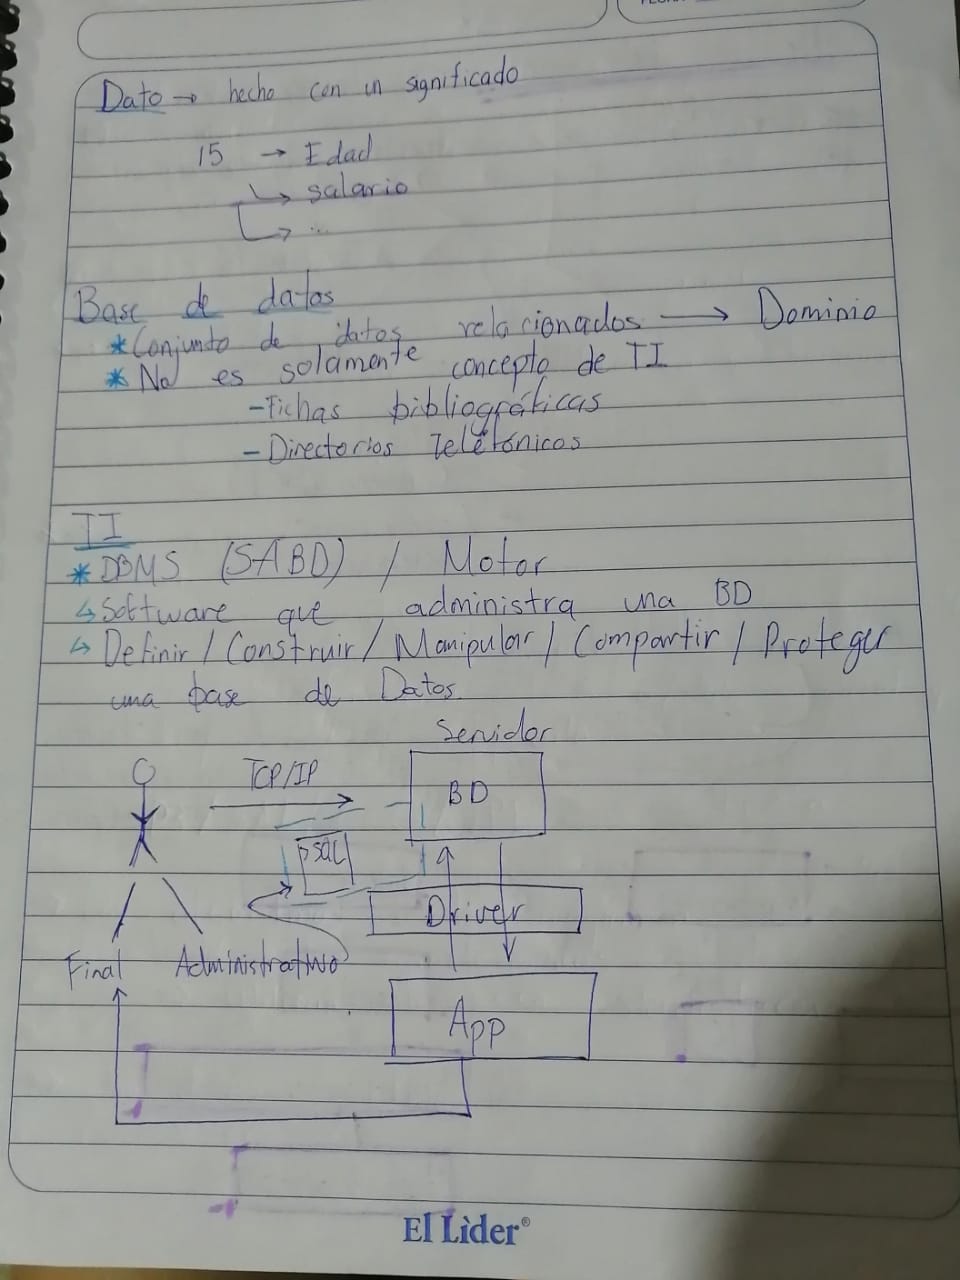 Dato → hecho con un significado
15 → Edad
↳ salario
↳ ...
Base de datos
* Conjunto de datos relacionados → Dominio
* No es solamente concepto de TI
- Fichas bibliográficas
- Directorios Telefónicos
TI
* DBMS (SABD) / Motor
↳ Software que administra una BD
↳ Definir / Construir / Manipular / Compartir / Proteger
una base de Datos
Servidor
TCP/IP
BD
PSQL
Driver
Final Administrativo
App
El Lìder®